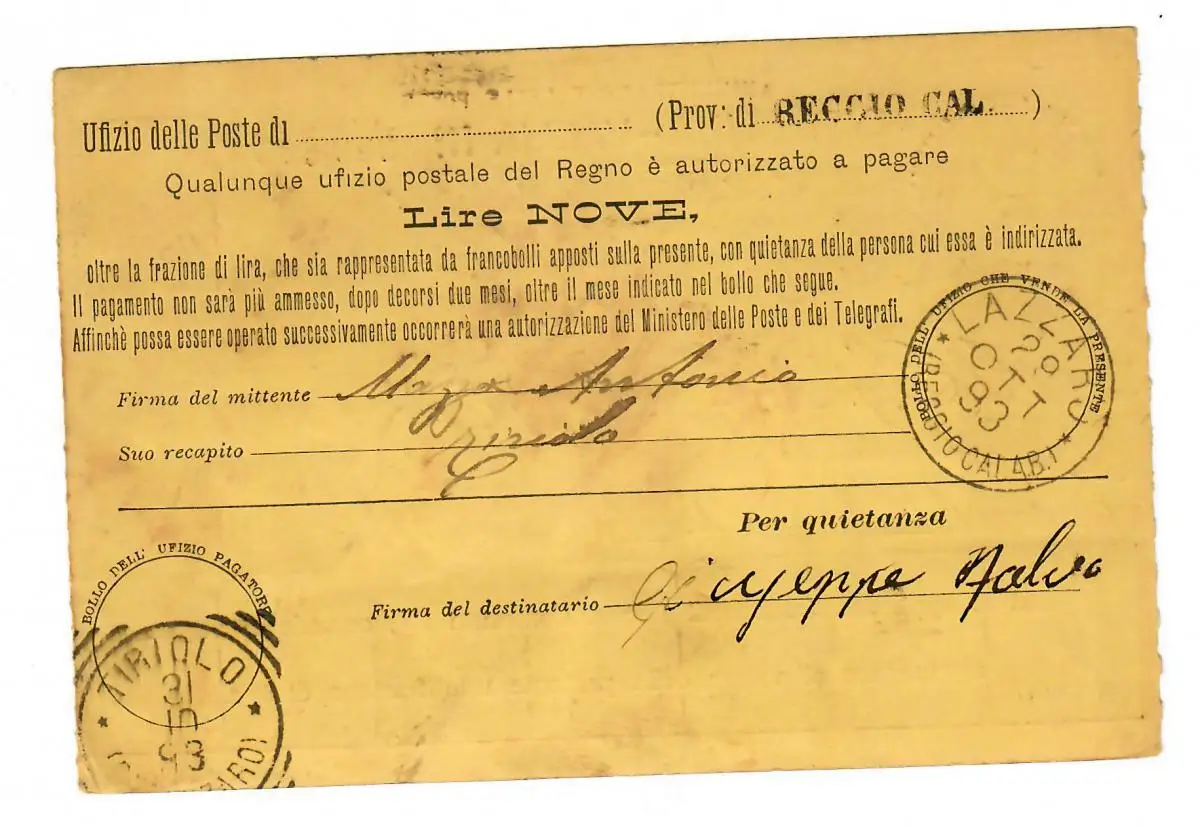 Ufizio delle Poste di (Prov: di REGGIO CAL. )
Qualunque ufizio postale del Regno è autorizzato a pagare
Lire NOVE,
oltre la frazione di lira, che sia rappresentata da francobolli apposti sulla presente, con quietanza della persona cui essa è indirizzata.
Il pagamento non sarà più ammesso, dopo decorsi due mesi, oltre il mese indicato nel bollo che segue.
Affinchè possa essere operato successivamente occorrerà una autorizzazione del Ministero delle Poste e dei Telegrafi.
BOLLO DELL' UFIZIO CHE VENDE LA PRESENTE
LAZZARO
29
OTT
93
(REGGIO CALAB.)
Firma del mittente Antonio
Suo recapito
Per quietanza
Firma del destinatario Giuseppe
BOLLO DELL' UFIZIO PAGATORE
TIRIOLO
31
10
93